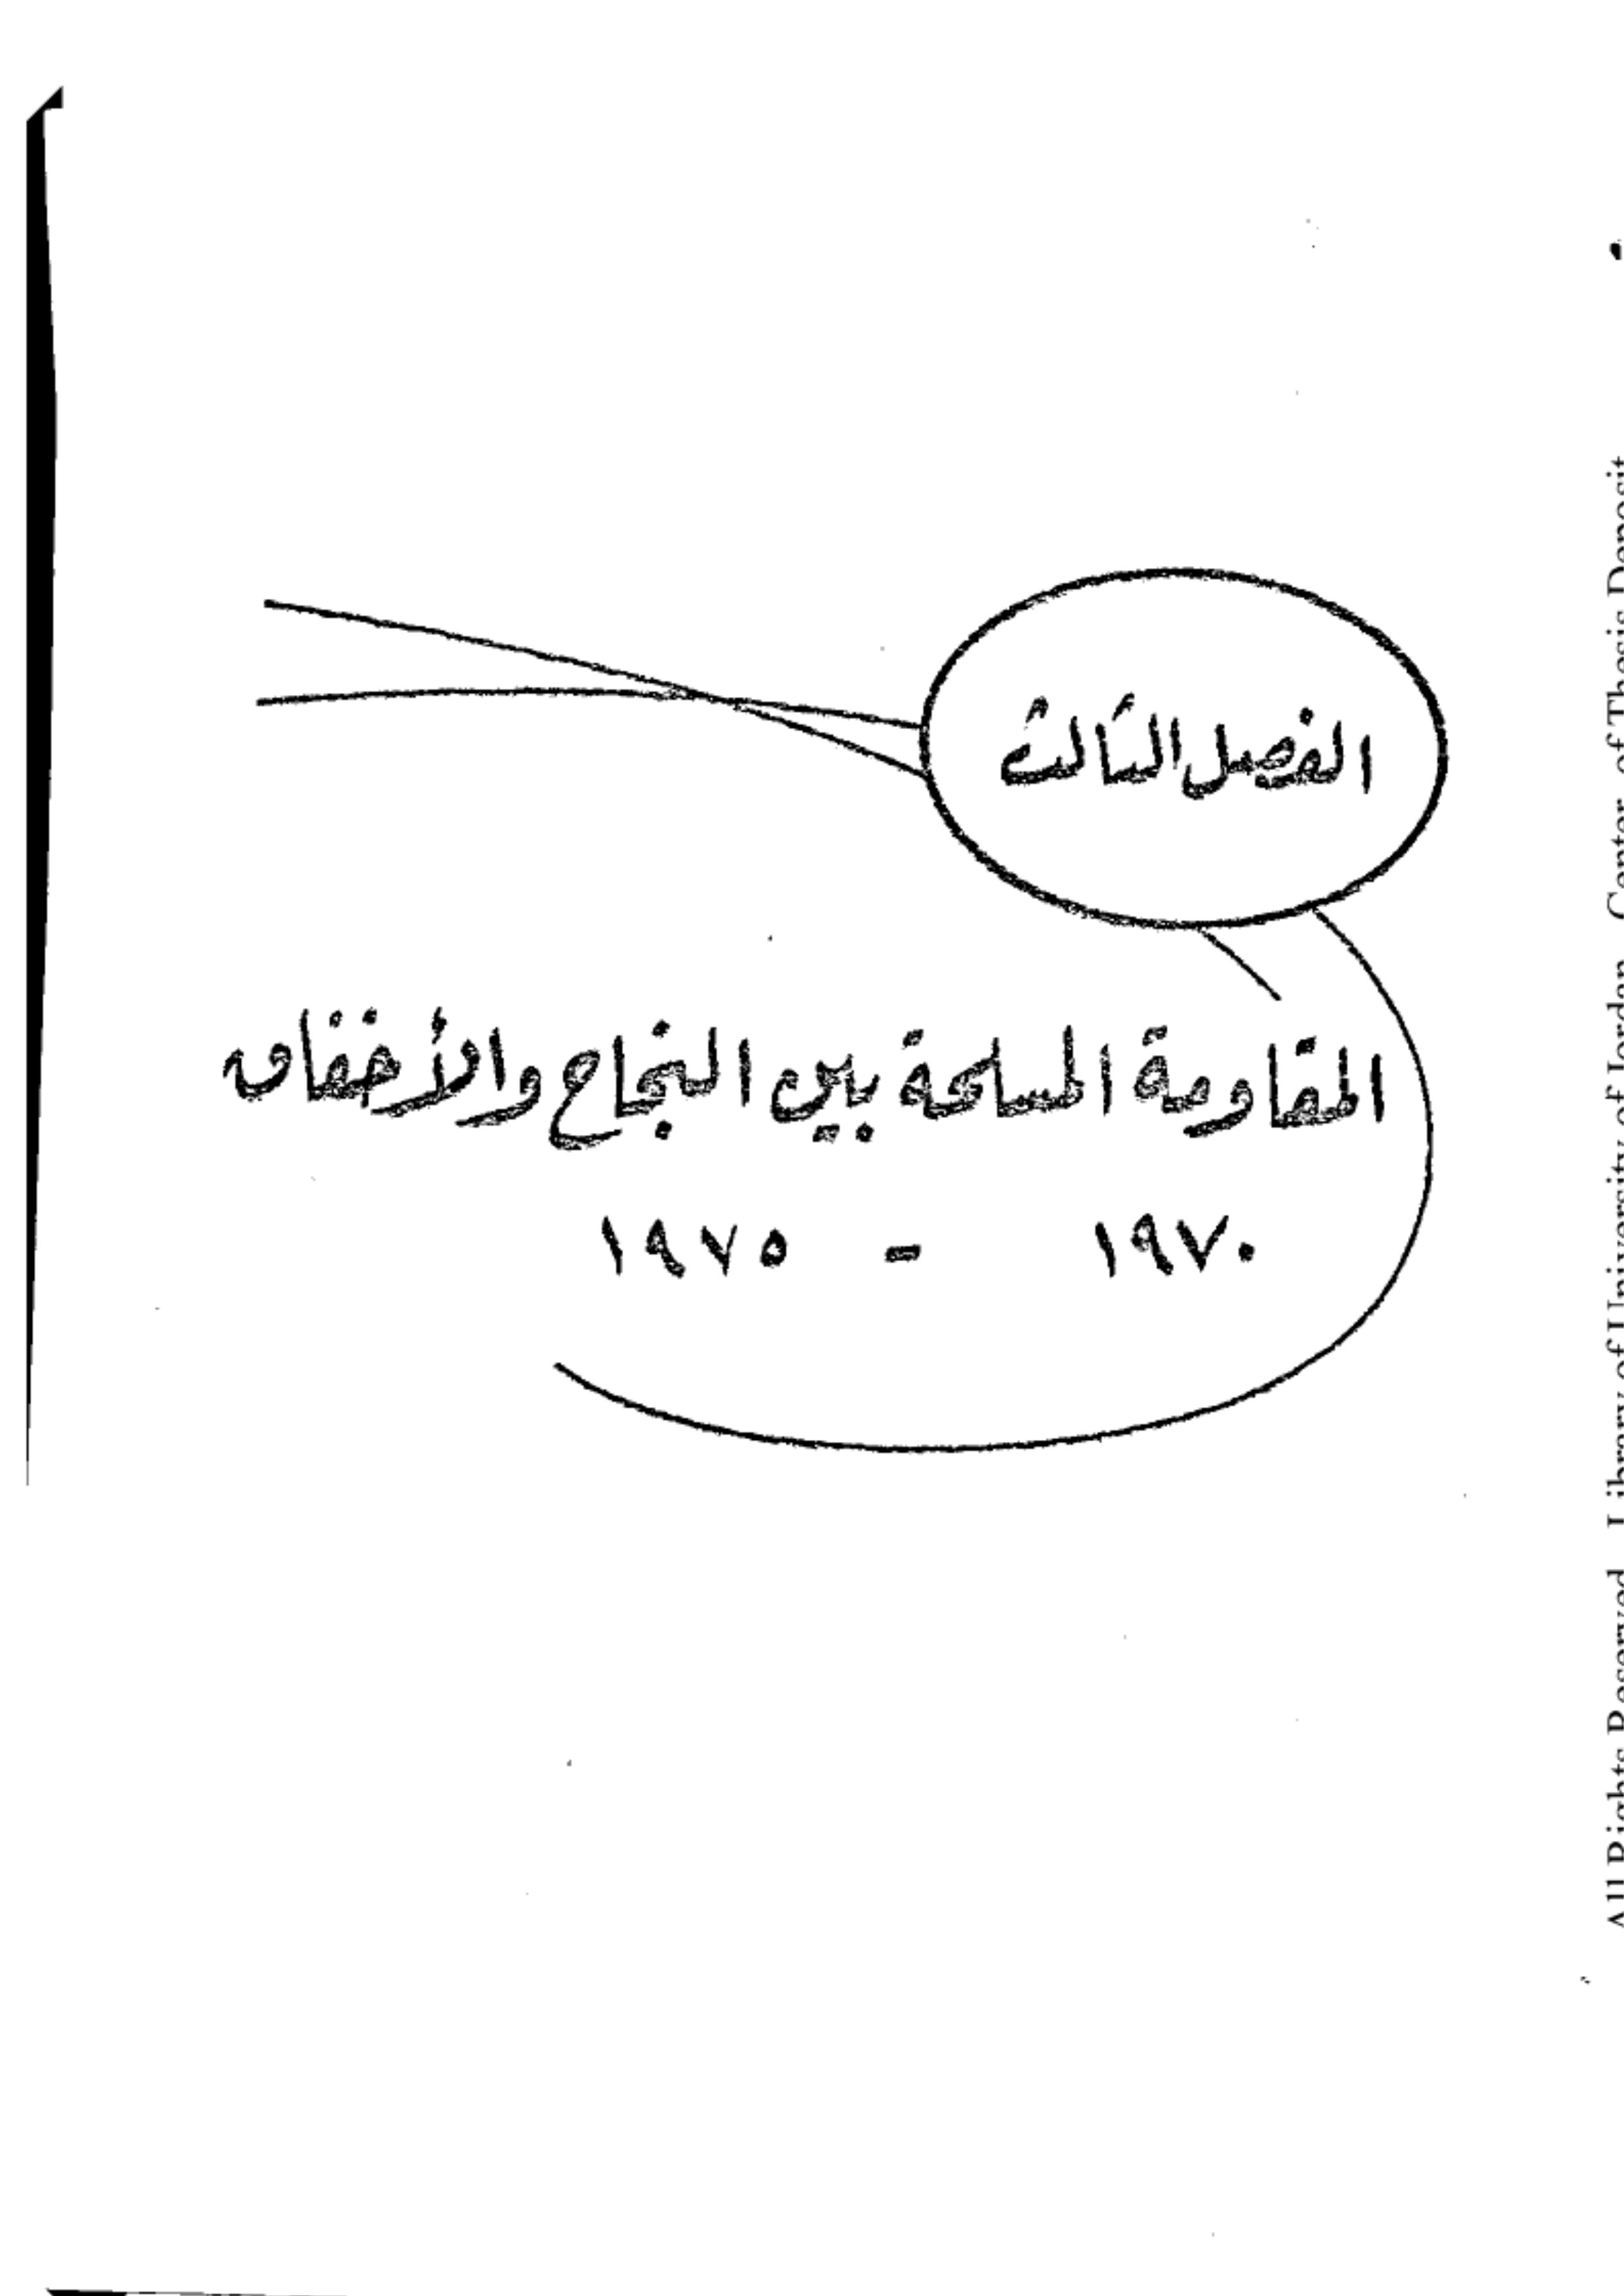 الفصل الثالث
المقاومة المسلحة بين النجاح والأخفاق
١٩٧٠ - ١٩٧٥
All Rights Reserved - Library of University of Jordan - Center of Thesis Deposit